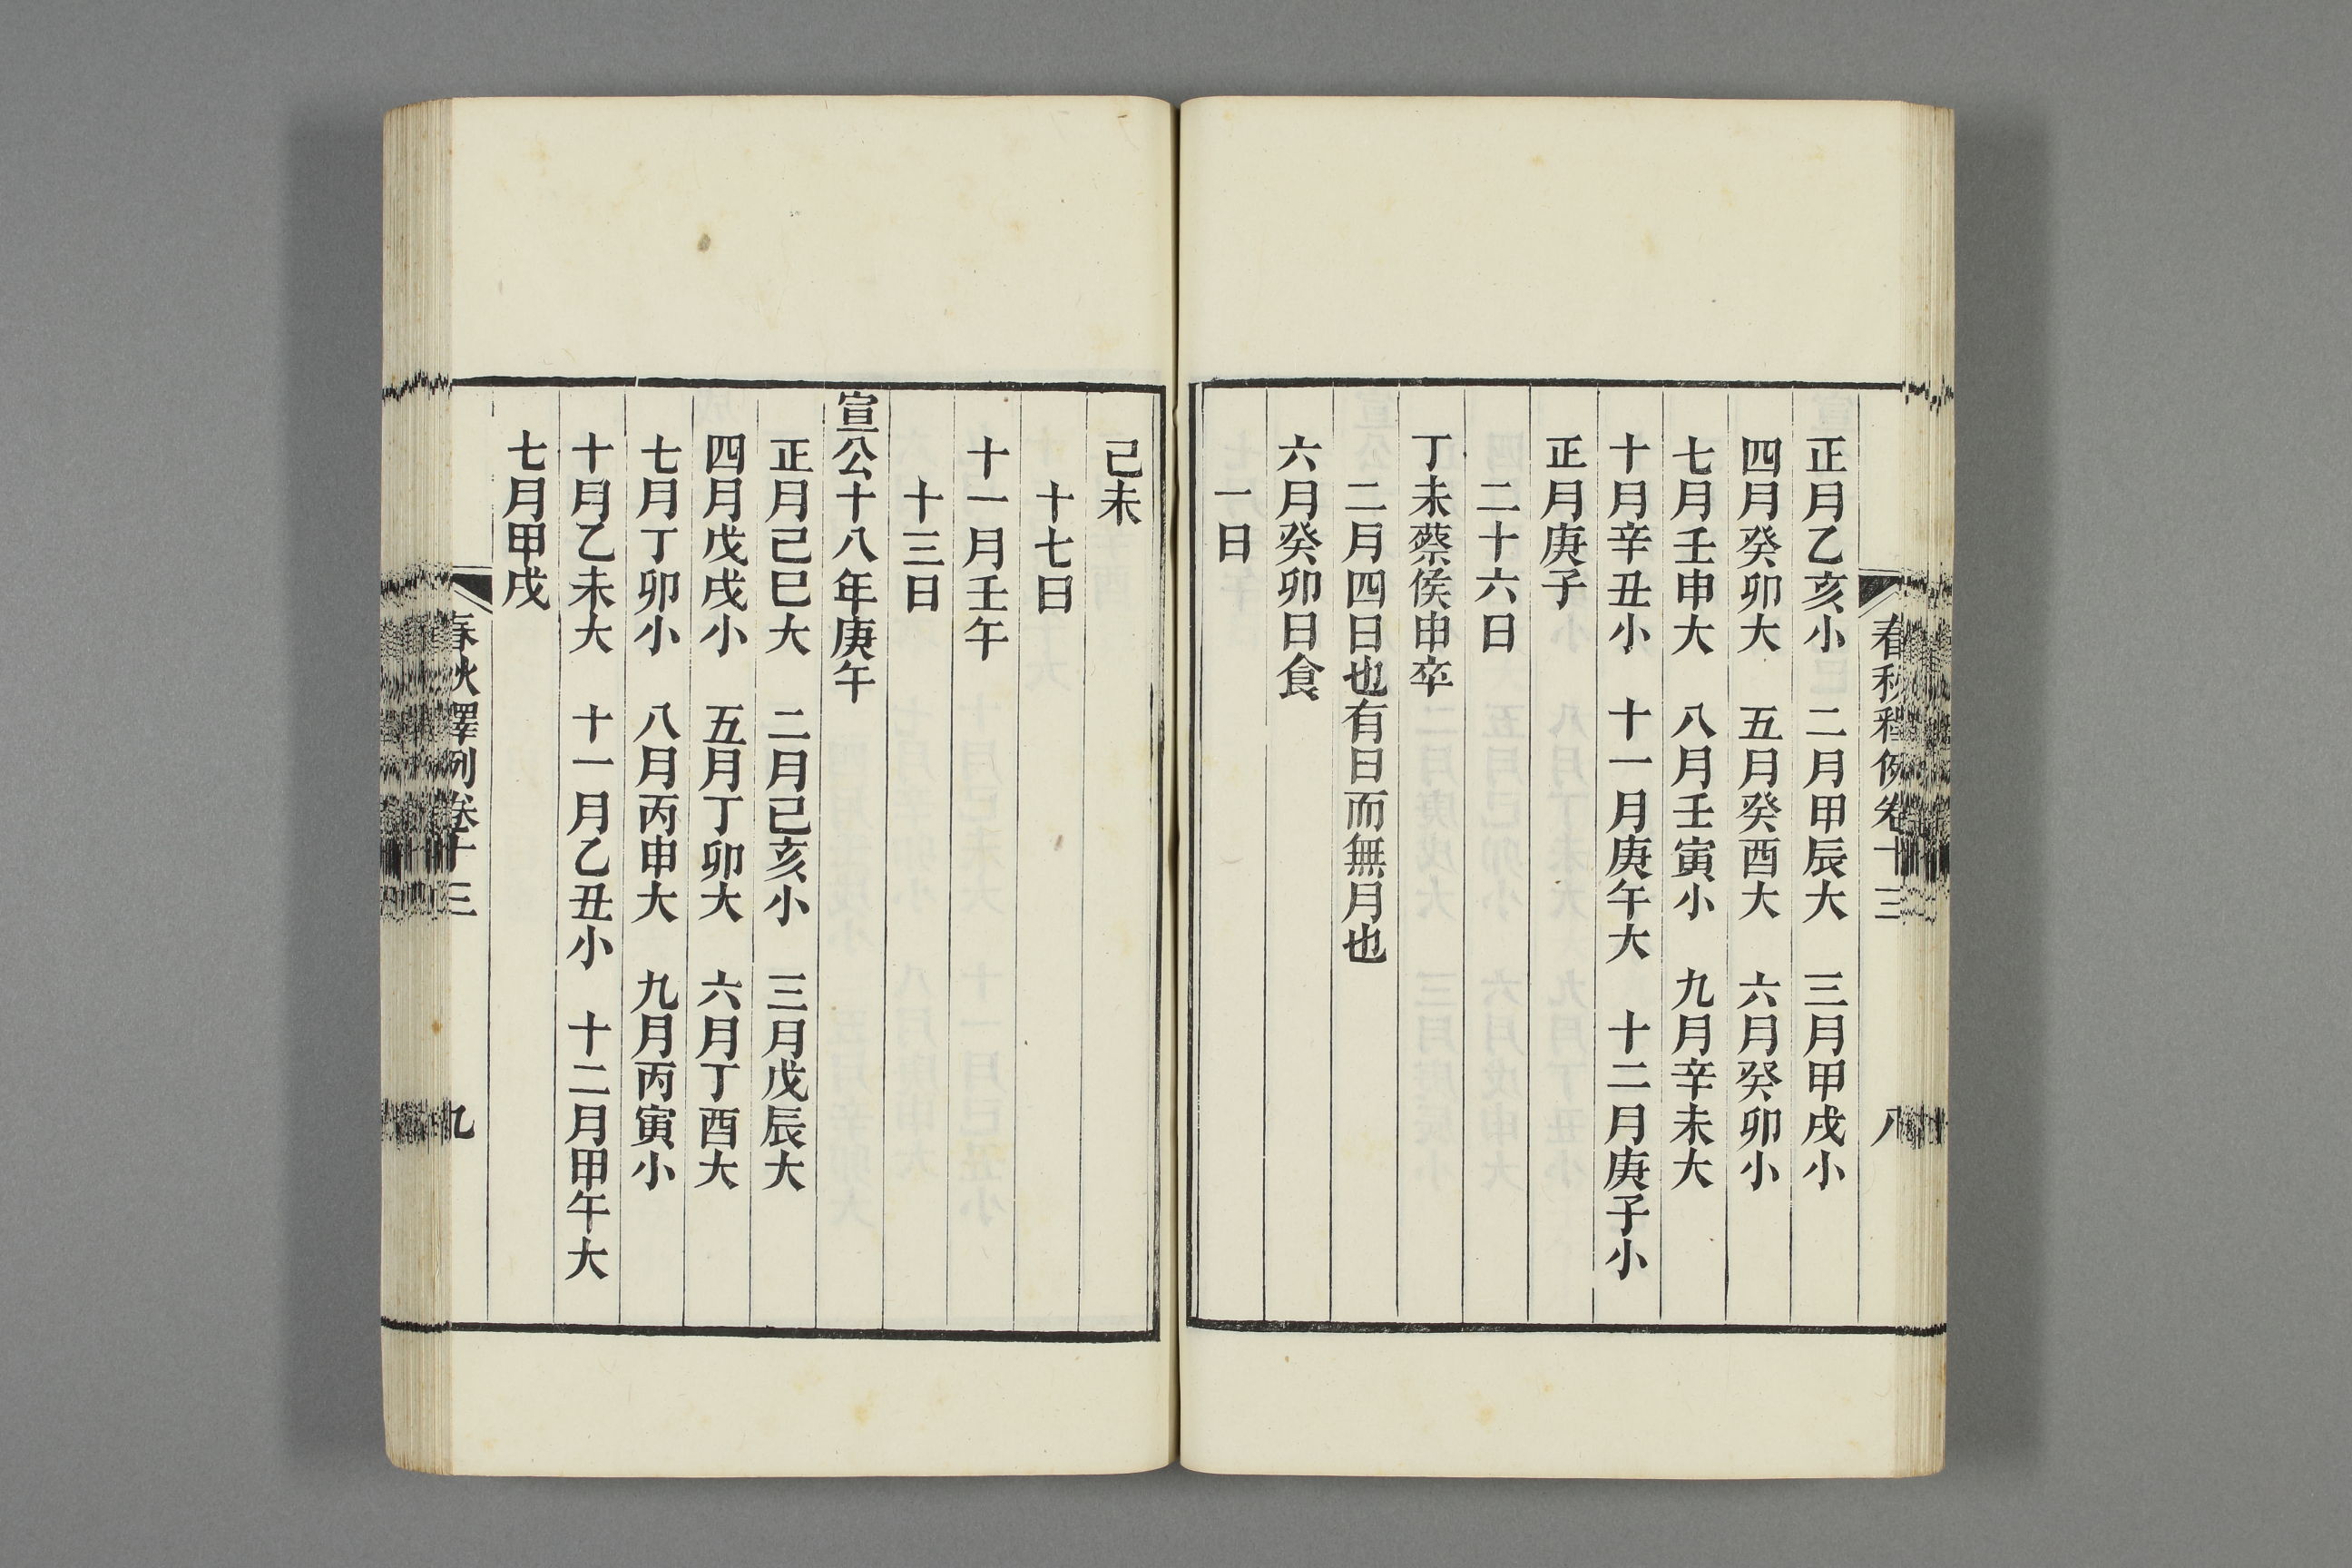 春秋釋例卷十三　八
正月乙亥小　二月甲辰大　三月甲戌小
四月癸卯大　五月癸酉大　六月癸卯小
七月壬申大　八月壬寅小　九月辛未大
十月辛丑小　十一月庚午大　十二月庚子小
正月庚子
二十六日
丁未蔡侯申卒
二月四日也有日而無月也
六月癸卯日食
一日
己未
十七日
十一月壬午
十三日
宣公十八年庚午
正月己巳大　二月己亥小　三月戊辰大
四月戊戌小　五月丁卯大　六月丁酉大
七月丁卯小　八月丙申大　九月丙寅小
十月乙未大　十一月乙丑小　十二月甲午大
七月甲戌
春秋釋例卷十三　九